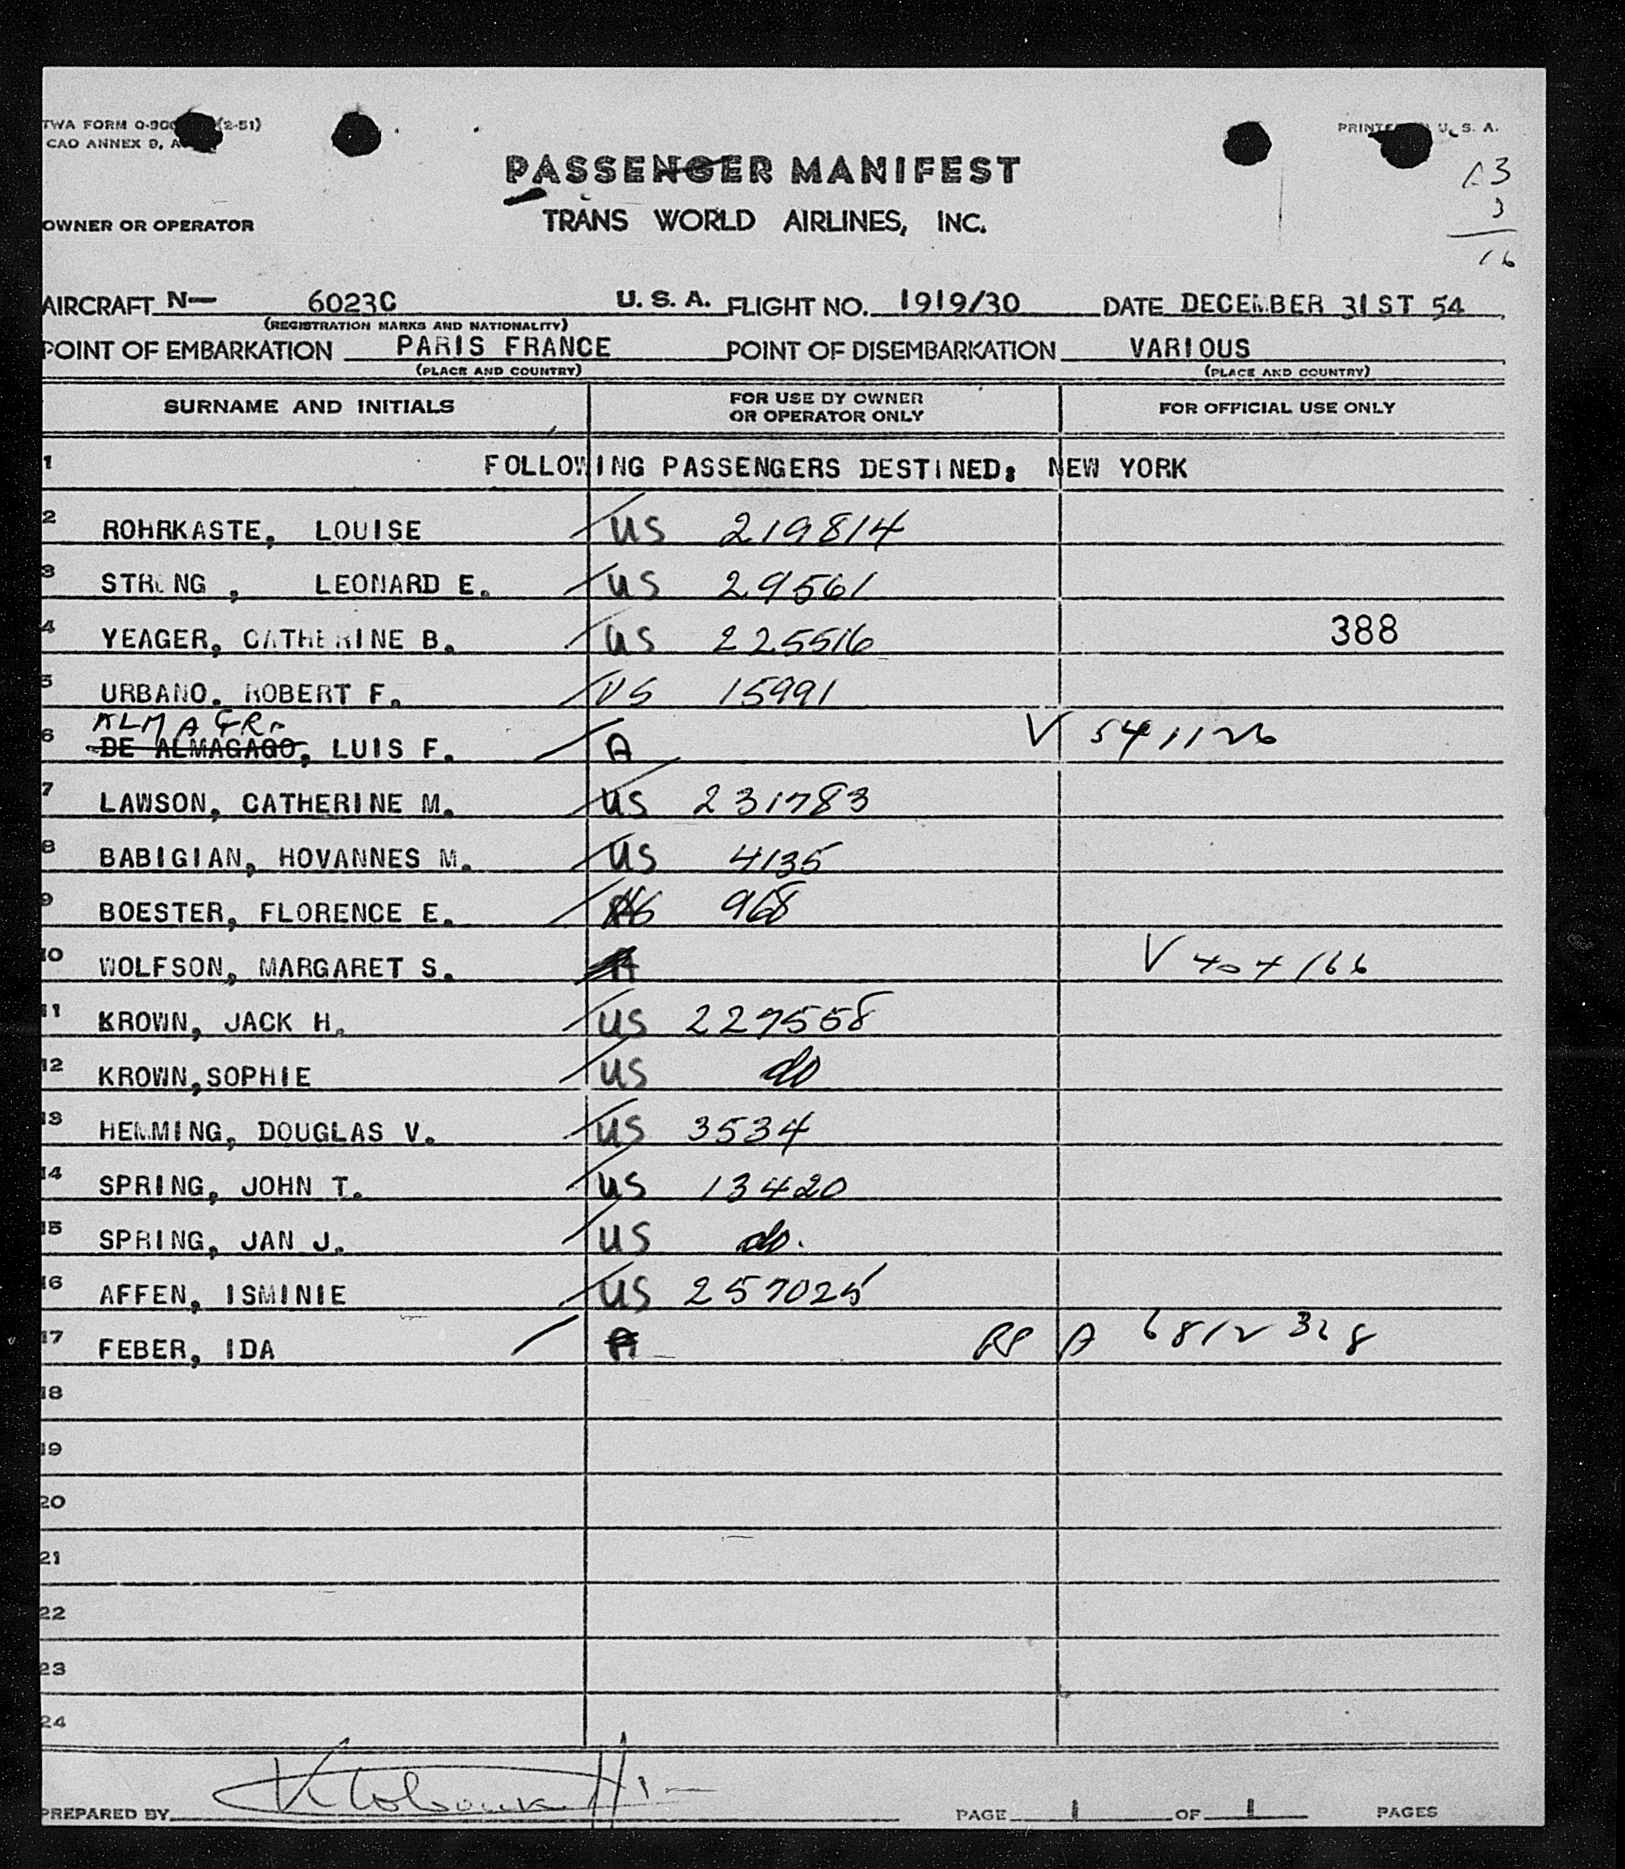 TWA FORM O-300 (2-51)
PRINTED IN U. S. A.
ICAO ANNEX 9, A
PASSENGER MANIFEST
13
3
16
OWNER OR OPERATOR
TRANS WORLD AIRLINES, INC.
AIRCRAFT N— 6023C U. S. A. FLIGHT NO. 1919/30 DATE DECEMBER 31ST 54
(REGISTRATION MARKS AND NATIONALITY)
POINT OF EMBARKATION PARIS FRANCE POINT OF DISEMBARKATION VARIOUS
(PLACE AND COUNTRY) (PLACE AND COUNTRY)
SURNAME AND INITIALS FOR USE BY OWNER OR OPERATOR ONLY FOR OFFICIAL USE ONLY
1 FOLLOWING PASSENGERS DESTINED: NEW YORK
2 ROHRKASTE, LOUISE US 219814
3 STRONG , LEONARD E. US 29561
4 YEAGER, CATHERINE B. US 225516 388
5 URBANO. ROBERT F. US 15991
ALMAGRO
6 DE ALMAGAGO, LUIS F. A V 541126
7 LAWSON, CATHERINE M. US 231783
8 BABIGIAN, HOVANNES M. US 4135
9 BOESTER, FLORENCE E. US 968
10 WOLFSON, MARGARET S. A V 404166
11 KROWN, JACK H. US 227558
12 KROWN,SOPHIE US do
13 HEMMING, DOUGLAS V. US 3534
14 SPRING, JOHN T. US 13420
15 SPRING, JAN J. US do.
16 AFFEN, ISMINIE US 257025
17 FEBER, IDA A RP A 6812328
18
19
20
21
22
23
24
PREPARED BY PAGE 1 OF 1 PAGES